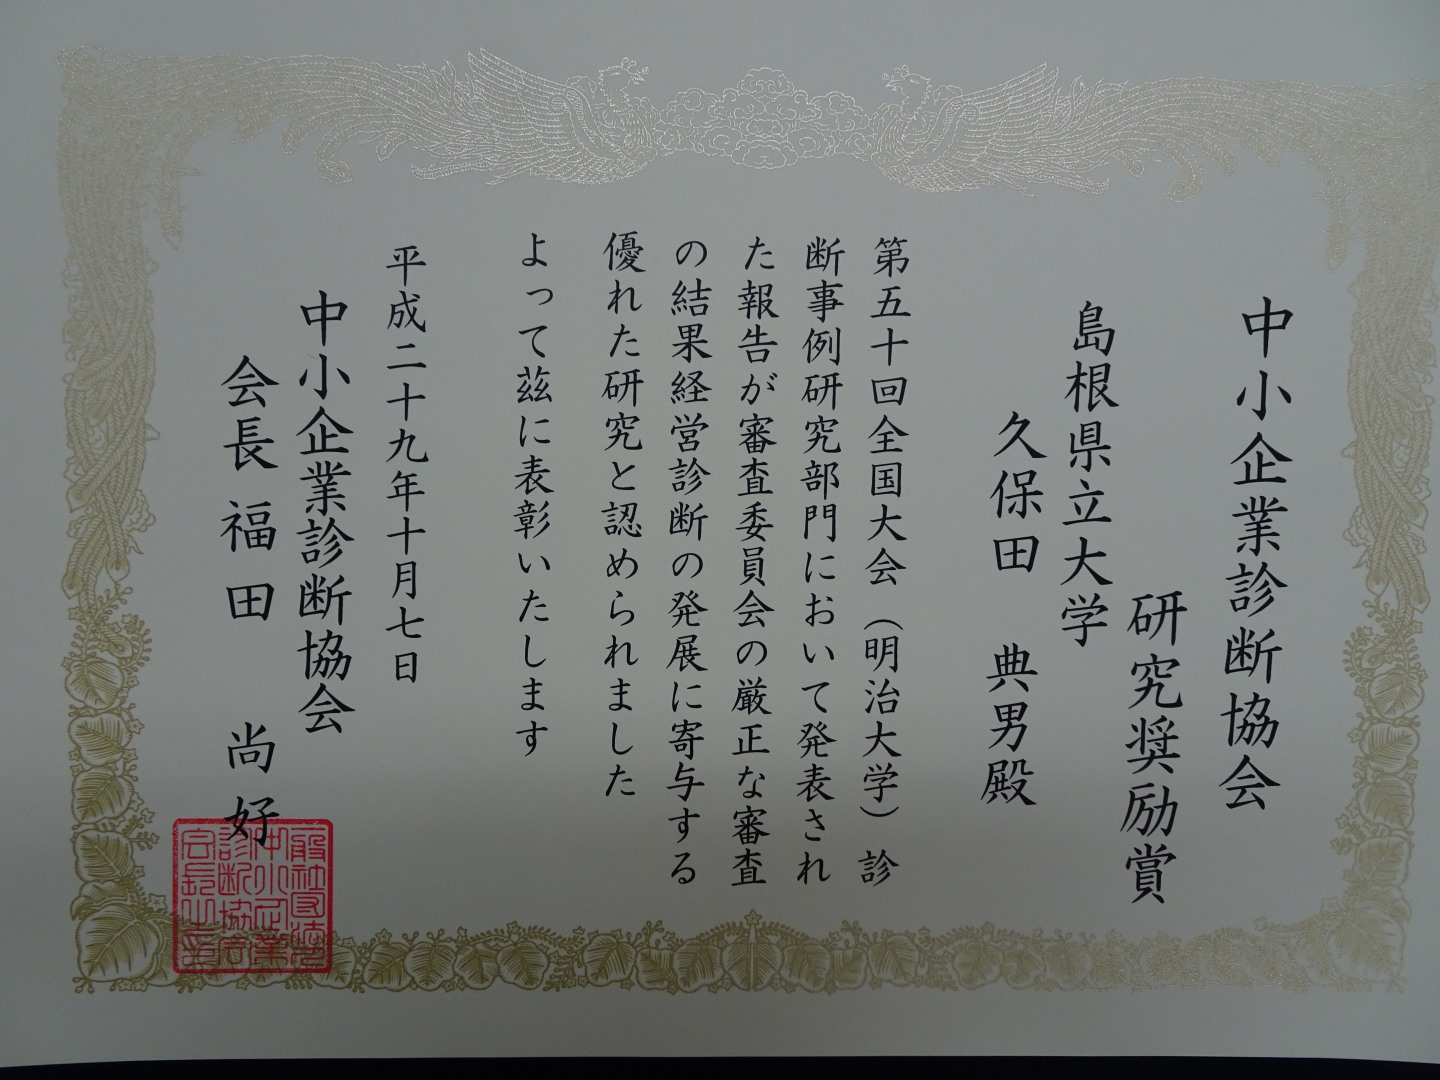 中小企業診断協会
研究奨励賞
島根県立大学
久保田 典男殿
第五十回全国大会（明治大学）診
断事例研究部門において発表され
た報告が審査委員会の厳正な審査
の結果経営診断の発展に寄与する
優れた研究と認められました
よって茲に表彰いたします
平成二十九年十月七日
中小企業診断協会
会長 福田 尚好
一般社団法人
中小企業
診断協会
会長之印